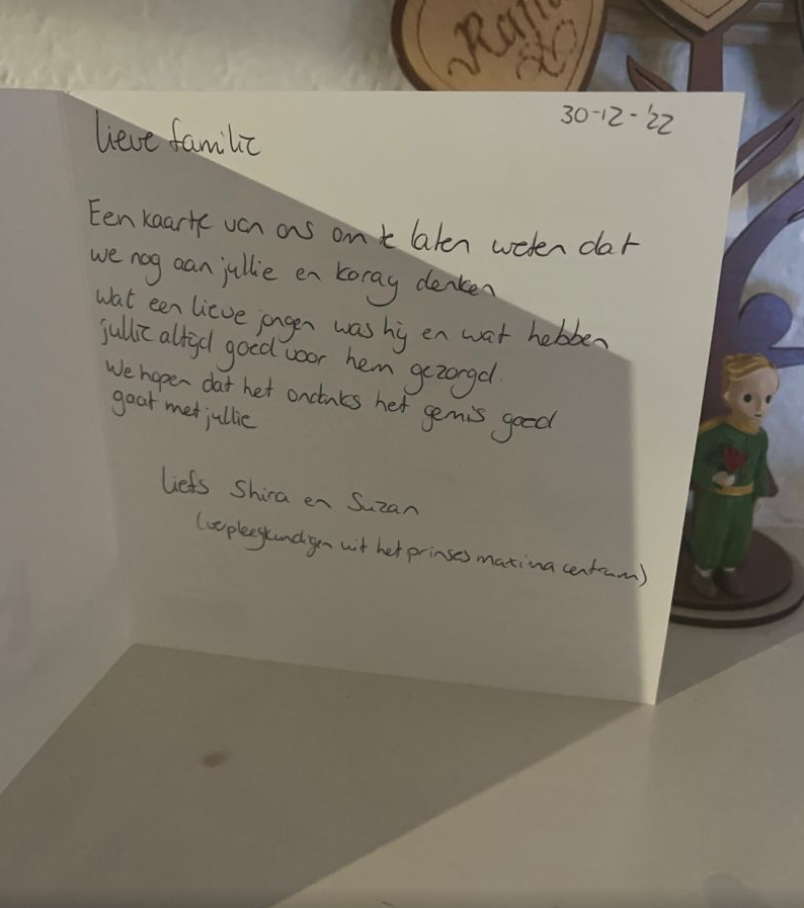 Rana
30-12-'22
lieve familie
Een kaartje van ons om te laten weten dat
we nog aan jullie en Koray denken
wat een lieve jongen was hij en wat hebben
jullie altijd goed voor hem gezorgd.
We hopen dat het ondanks het gemis goed
gaat met jullie
liefs Shira en Suzan
(verpleegkundigen uit het prinses maxima centrum)